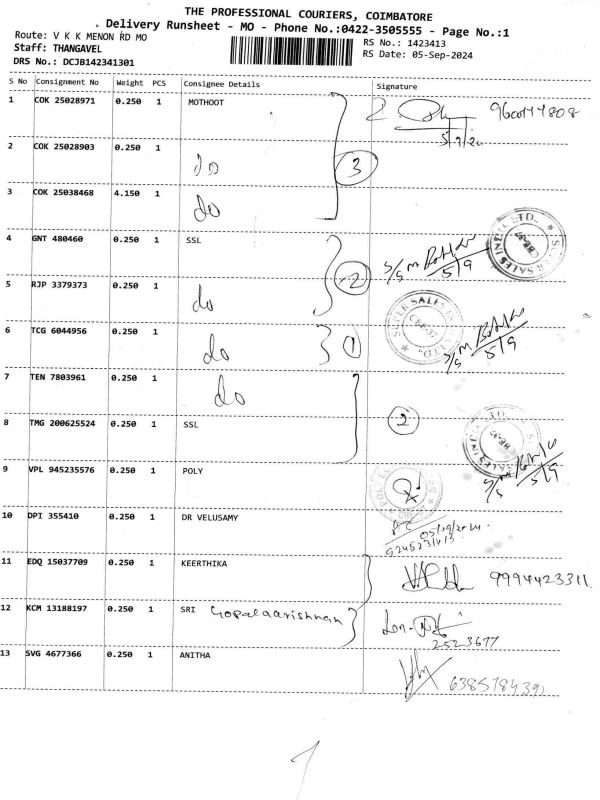 THE PROFESSIONAL COURIERS, COIMBATORE
Delivery Runsheet - MO - Phone No.:0422-3505555 - Page No.:1
Route: V K K MENON RD MO
RS No.: 1423413
Staff: THANGAVEL
RS Date: 05-Sep-2024
DRS No.: DCJB142341301
S No Consignment No Weight PCS Consignee Details Signature
1 COK 25028971 0.250 1 MOTHOOT 2
2 COK 25028903 0.250 1 do 3
3 COK 25038468 4.150 1 do
4 GNT 480460 0.250 1 SSL 5/9
5 RJP 3379373 0.250 1 do 2
6 TCG 6044956 0.250 1 do 1 5/9
7 TEN 7803961 0.250 1 do
8 TMG 200625524 0.250 1 SSL 2 5/9
9 VPL 945235576 0.250 1 POLY
10 DPI 355410 0.250 1 DR VELUSAMY
11 EDQ 15037709 0.250 1 KEERTHIKA 9994423311
12 KCM 13188197 0.250 1 SRI 2523677
13 SVG 4677366 0.250 1 ANITHA